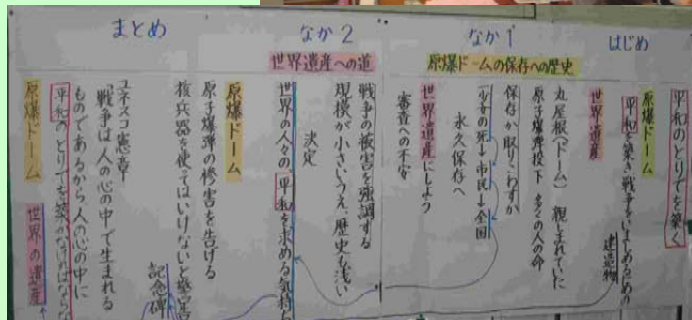 はじめ
平和のとりでを築く
原爆ドーム
平和を築き戦争をいましめるための
建造物
世界遺産
なか1
原爆ドームの保存への歴史
丸屋根(ドーム) 親しまれていた
原子爆弾投下 多くの人の命
保存か取りこわすか
少女の死→市民→全国
永久保存へ
世界遺産にしよう
審査への不安
なか2
世界遺産への道
戦争の被害を強調する
規模が小さいうえ、歴史も浅い
決定
世界の人々の、平和を求める気持ち
まとめ
原爆ドーム
原子爆弾の惨害を告げる
核兵器を使ってはいけないと警告
記念碑
ユネスコ憲章
戦争は人の心の中で生まれる
ものであるから、人の心の中に
平和のとりでを築かなければならな
原爆ドーム
世界の遺産